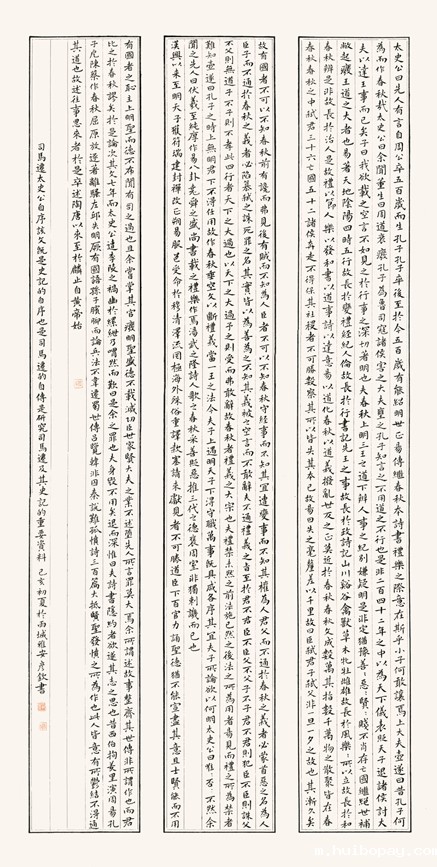 太史公曰先人有言自周公卒五百歲而生孔子孔子卒後至於今五百歲有能紹明世正易傳繼春秋本詩書禮樂之際意在斯乎小子何敢讓焉上大夫壺遂曰昔孔子何
為而作春秋哉太史公曰余聞董生曰周道衰廢孔子為魯司寇諸侯害之大夫壅之孔子知言之不用道之不行也是非二百四十二年之中以為天下儀表貶天子退諸侯討大
夫以達王事而已矣子曰我欲載之空言不如見之於行事之深切著明也夫春秋上明三王之道下辨人事之紀別嫌疑明是非定猶豫善善惡惡賢賢賤不肖存亡國繼絕世補
敝起廢王道之大者也易著天地陰陽四時五行故長於變禮經紀人倫故長於行書記先王之事故長於政詩記山川谿谷禽獸草木牝牡雌雄故長於風樂樂所以立故長於和
春秋辨是非故長於治人是故禮以節人樂以發和書以道事詩以達意易以道化春秋以道義撥亂世反之正莫近於春秋春秋文成數萬其指數千萬物之散聚皆在
春秋春秋之中弒君三十六亡國五十二諸侯奔走不得保其社稷者不可勝數察其所以皆失其本已故易曰失之毫釐差以千里故曰臣弒君子弒父非一旦一夕之故也其漸久矣
故有國者不可以不知春秋前有讒而弗見後有賊而不知為人臣者不可以不知春秋守經事而不知其宜遭變事而不知其權為人君父而不通於春秋之義者必蒙首惡之名為人
臣子而不通於春秋之義者必陷篡弒之誅死罪之名其實皆以為善為之不知其義被之空言而不敢辭夫不通禮義之旨至於君不君臣不臣父不父子不子君不君則犯臣不臣則誅父
不父則無道子不子則不孝此四行者天下之大過也以天下之大過予之則受而弗敢辭故春秋者禮義之大宗也夫禮禁未然之前法施已然之後法之所為用者易見而禮之所為禁者
難知壺遂曰孔子之時上無明君下不得任用故作春秋垂空文以斷禮義當一王之法今夫子上遇明天子下得守職萬事既具咸各序其宜夫子所論欲以何明太史公曰唯唯否否不然余
聞之先人曰伏羲至純厚作易八卦堯舜之盛尚書載之禮樂作焉湯武之隆詩人歌之春秋采善貶惡推三代之德褒周室非獨刺譏而已也
漢興以來至明天子獲符瑞建封禪改正朔易服色受命於穆清澤流罔極海外殊俗重譯款塞請來獻見者不可勝道臣下百官力誦聖德猶不能宣盡其意且士賢能而不用
有國者之恥主上明聖而德不布聞有司之過也且余嘗掌其官廢明聖盛德不載滅功臣世家賢大夫之業不述墮先人所言罪莫大焉余所謂述故事整齊其世傳非所謂作也而君
比之於春秋謬矣於是論次其文七年而太史公遭李陵之禍幽於縲紲乃喟然而歎曰是余之罪也夫身毀不用矣退而深惟曰夫詩書隱約者欲遂其志之思也昔西伯拘羑里演周易孔
子戹陳蔡作春秋屈原放逐著離騷左丘失明厥有國語孫子臏腳而論兵法不韋遷蜀世傳呂覽韓非囚秦說難孤憤詩三百篇大抵賢聖發憤之所為作也此人皆意有所鬱結不得通
其道也故述往事思來者於是卒述陶唐以來至於麟止自黃帝始
司馬遷太史公自序該文既是史記的自序也是司馬遷的自傳是研究司馬遷及其史記的重要資料 己亥初夏於雨城雅安彦欽書
m.huibopay.com